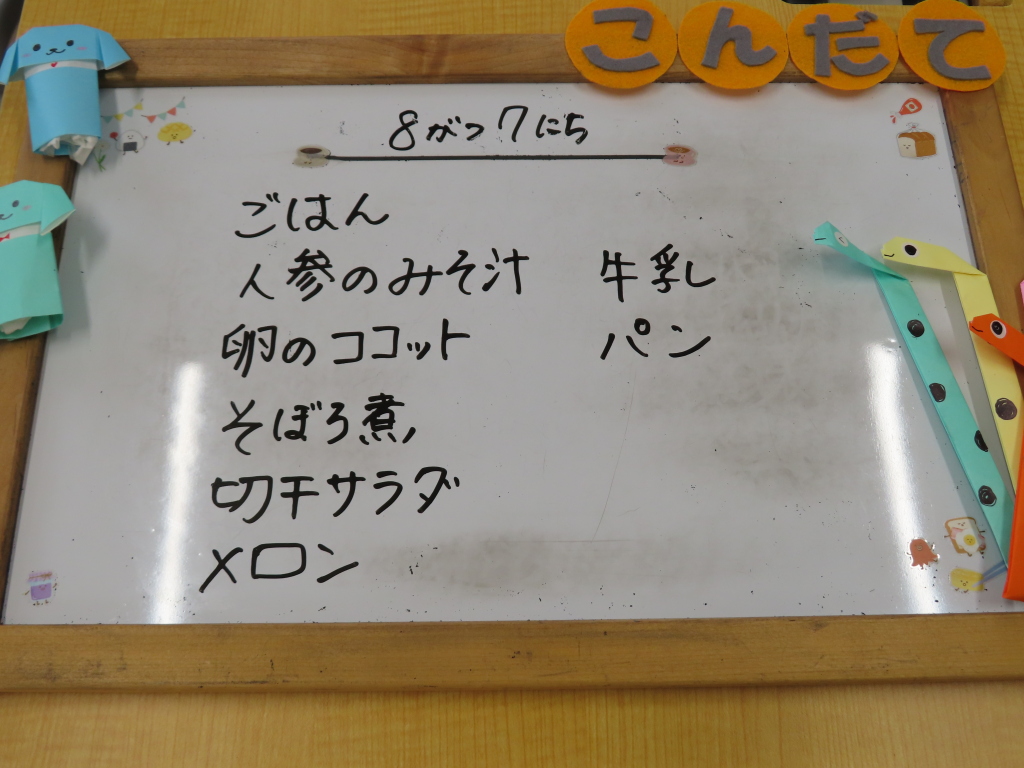 こんだて
8がつ7にち
ごはん
人参のみそ汁
卵のココット
そぼろ煮
切干サラダ
メロン
牛乳
パン